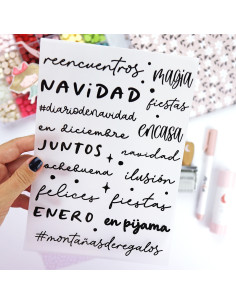 reencuentros
magia
NAVIDAD
fiestas
#diariodenavidad
en diciembre
encasa
JUNTOS
navidad
nochebuena
ilusión
felices
fiestas
ENERO
en pijama
#montañasderegalos